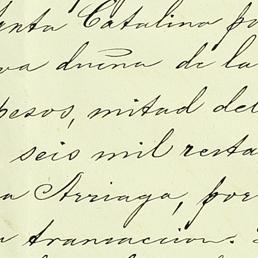 anta Catalina po
va dueña de la
pesos, mitad del
seis mil resta
a Arriaga, por
n transaccion.